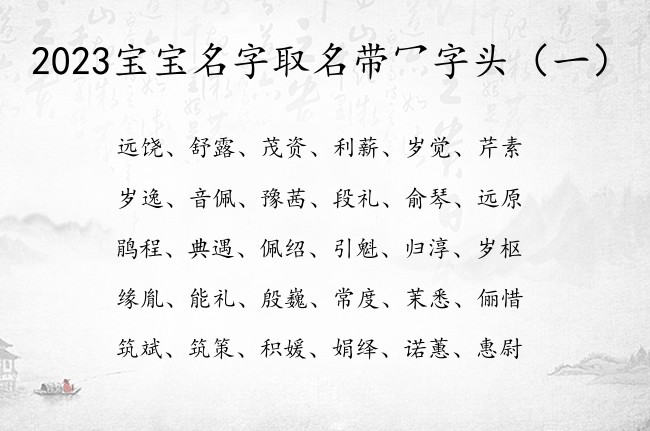 2023宝宝名字取名带冖字头（一）
远饶、舒露、茂资、利薪、岁觉、芹素
岁逸、音佩、豫茜、段礼、俞琴、远原
鹃程、典遇、佩绍、引魁、归淳、岁枢
缘胤、能礼、殷巍、常度、茉悉、俪惜
筑斌、筑策、积媛、娟绎、诺蕙、惠尉